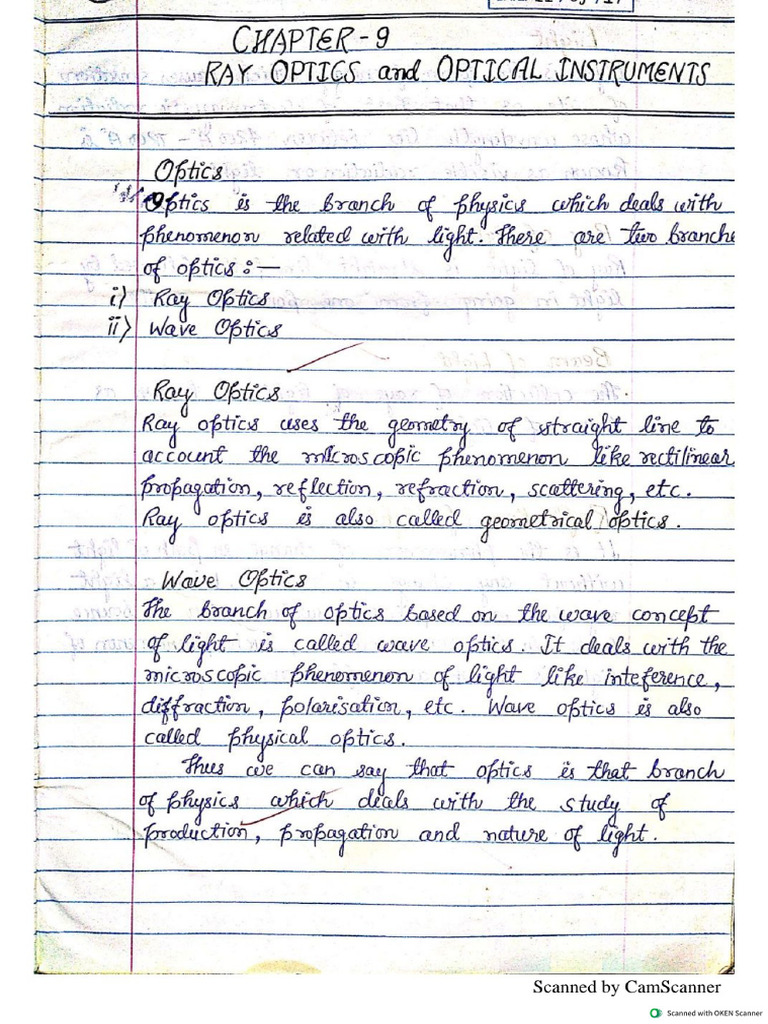 CHAPTER-9
RAY OPTICS and OPTICAL INSTRUMENTS
Optics
Optics is the branch of physics which deals with
phenomenon related with light. There are two branche
of optics :—
i) Ray Optics
ii) Wave Optics
Ray Optics
Ray optics uses the geometry of straight line to
account the microscopic phenomenon like rectilinear
propagation, reflection, refraction, scattering, etc.
Ray optics is also called geometrical optics.
Wave Optics
The branch of optics based on the wave concept
of light is called wave optics. It deals with the
microscopic phenomenon of light like inteference,
diffraction, polarisation, etc. Wave optics is also
called physical optics.
Thus we can say that optics is that branch
of physics which deals with the study of
production, propagation and nature of light.
Scanned by CamScanner
Scanned with OKEN Scanner